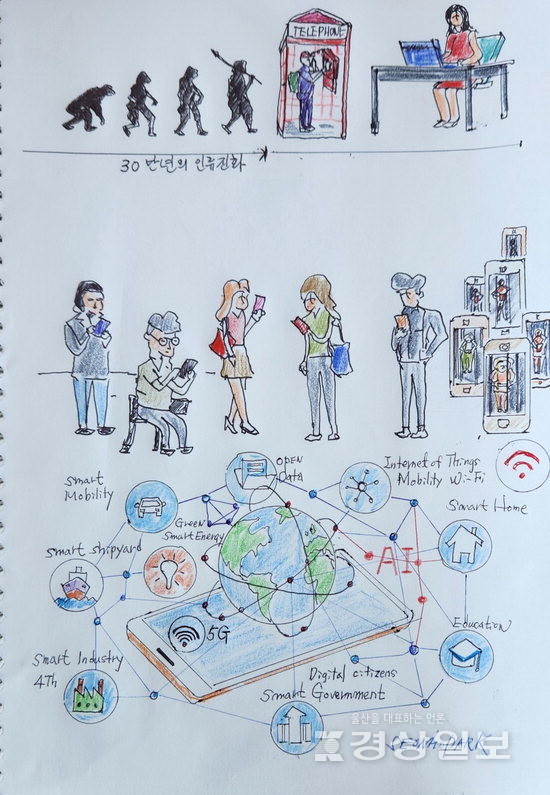 TELEPHONE
30만년의 인류진화
OPEN
Data
Internet of Things
Mobility Wi-Fi
Smart
Mobility
Green
Smart Energy
Smart Home
Smart Shipyard
AI
5G
Education
Smart Industry
4Th
Digital citizens
Smart Government
울산을 대표하는 언론
경상일보
SEONA PARK